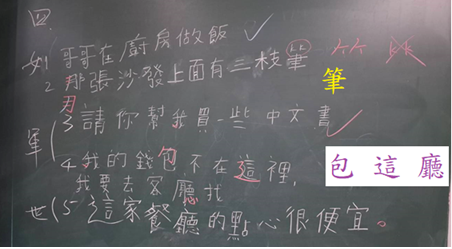 四
例 哥哥在廚房做飯 ✓
2 那張沙發上面有三枝筆
筆
3 請你幫我買一些中文書 ✓
4 我的錢包不在這裡,
我要去客廳找
包 這 廳
5 這家餐廳的點心很便宜。